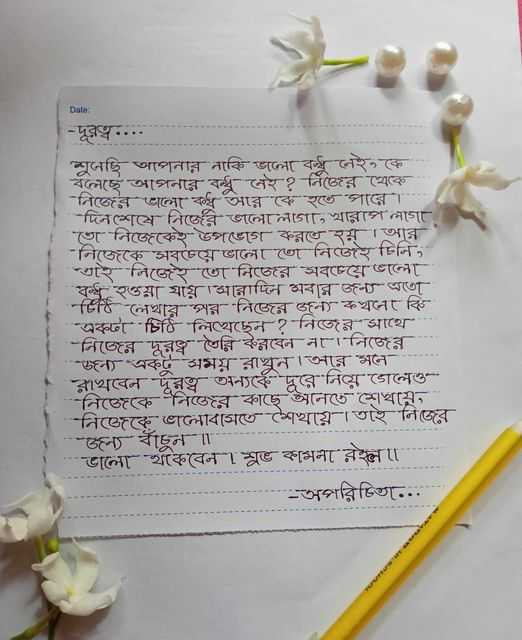 Date:
-দূরত্ব....
শুনেছি আপনার নাকি ভালো বন্ধু নেই, কে
বলেছে আপনার বন্ধু নেই? নিজের থেকে
নিজের ভালো বন্ধু আর কে হতে পারে।
দিনশেষে নিজের ভালোলাগা, খারাপ লাগা
তো নিজেকেই উপভোগ করতে হয়। আর
নিজেকে সবচেয়ে ভালো তো নিজেই চিনি,
তাই নিজেই তো নিজের সবচেয়ে ভালো
বন্ধু হওয়া যায়। সারাদিন সবার জন্য এতো
চিঠি লেখার পর নিজের জন্য কখনো কি
একটা চিঠি লিখেছেন? নিজের সাথে
নিজের দূরত্ব তৈরি করবেন না। নিজের
জন্য একটু সময় রাখুন। আর মনে
রাখবেন দূরত্ব অন্যকে দূরে নিয়ে গেলেও
নিজেকে নিজের কাছে আনতে শেখায়,
নিজেকে ভালোবাসতে শেখায়। তাই নিজের
জন্য বাঁচুন॥
ভালো থাকবেন। শুভ কামনা রইল॥
-অপরিচিতা...